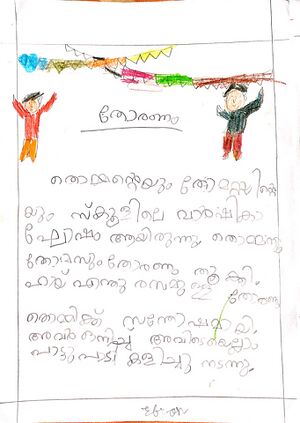 തോരണം
തൊമ്മന്റെയും തോമസ്സിന്റെ
യും സ്കൂളിലെ വാർഷികാ
ഘോഷം ആയിരുന്നു. തൊമ്മനും
തോമസും തോരണം തൂക്കി.
ഹായ് എന്തു രസമു
തോരണം
തൊമ്മിക്ക് സന്തോഷമായി.
അവർ ഒന്നിച്ച് അവിടെയെല്ലാം
പാട്ടുപാടി കളിച്ചു നടന്നു.